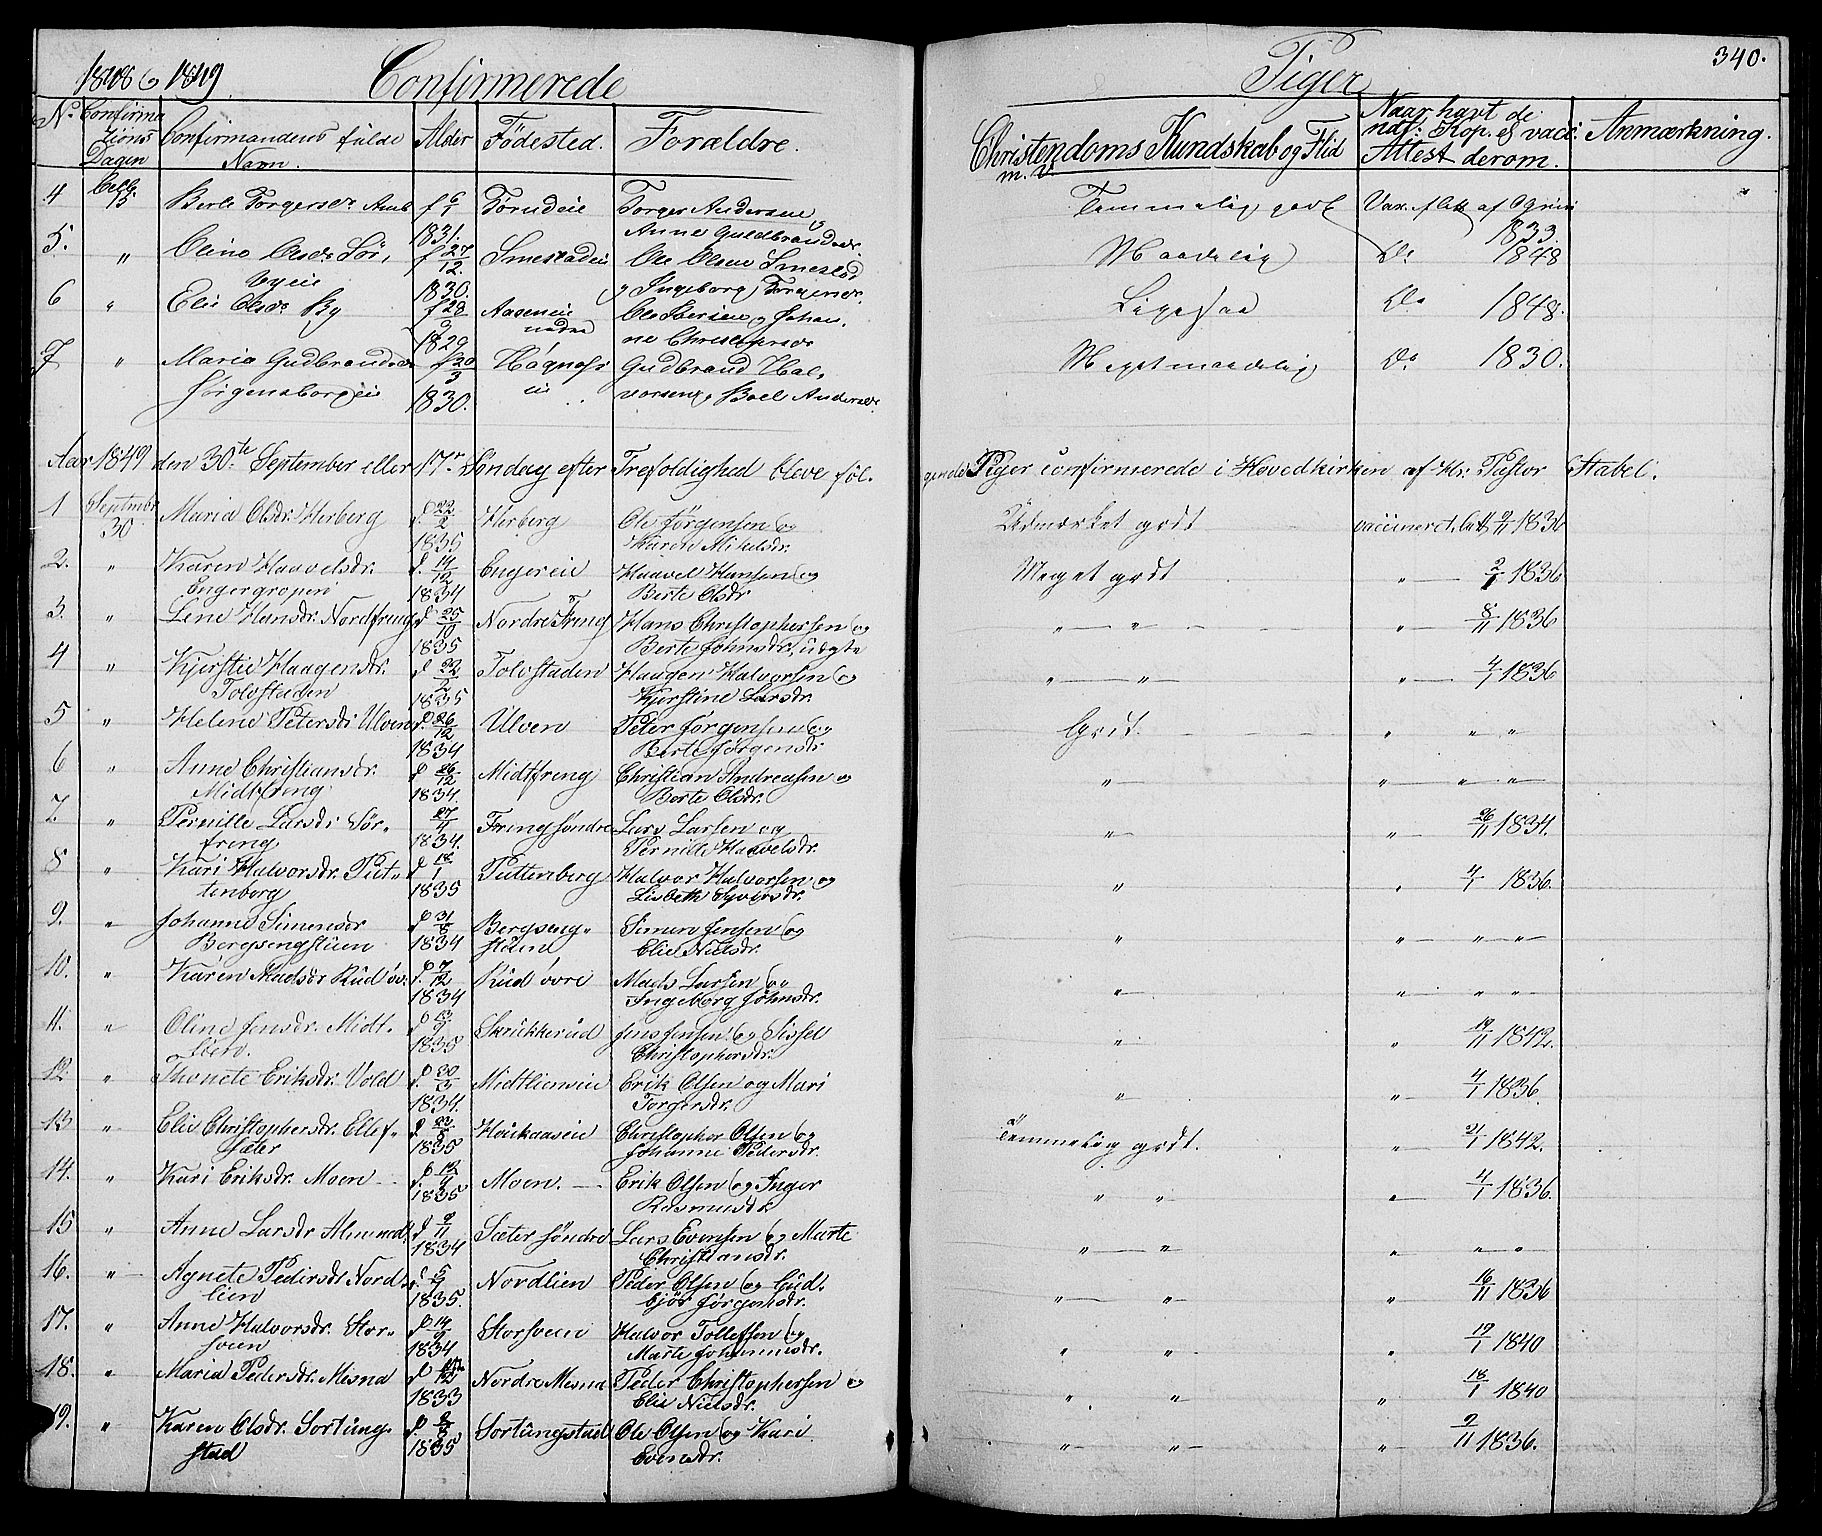 1848 & 1849. Confirmerede Piger 340.
No. Confirma
tions
Dagen Confirmandens fulde
Navn. Alder Födested. Forældre. Christendoms Kundskab og Flid
m. v. Naar havt de
nat: Kop. el vacc:
Attest derom. Anmærkning.
4 Octb. 15 Berte Torgersdr. f 6/1 1831. Torger Andersen og Anne Guldbrandsdr. Temmelig godt Vax. 1833.
5. " Oline Olsdr. f 27/12 1830. Smestadeie Ole Olsen Smestad og Ingeborg Torgersdr. Maadelig Do 1848
6 " Elie Olsdr. By f 28/9 1829 Aaseneie nedre Ole Iversen og Johanne Christophersdr Ligesaa Do 1848.
7 " Maria Gudbrandsdr Jørgensborgeie f 20/3 1830. Gudbrand Halvorsen og Boel Andersdr. Meget maadelig Do 1830.
Aar 1849 den 30te September eller 17r Søndag efter Trefoldighed bleve föl-
gende Piger confirmerede i Hovedkirken af Hr. Pastor Stabel.
1 Septembr 30 Maria Olsdr. Herberg f. 22/2 1835 Herberg Ole Jørgensen og Karen Mikelsdr. Udmærket godt vaccineret. 9/11 1836
2. " Karen Haavelsdr. Engergropen f. 14/12 1834 Engereie Haavel Hansen og Berte Olsdr Meget godt " 2/1 1836
3. " Lene Hansdr. Nordfreng f 25/10 1835 Nordre Freng Hans Christophersen og Berte Johnsdr., uægte " " " 8/11 1836
4 " Kjerstie Haagensdr. Tolvstaden f 22/2 1835 Tolvstaden Haagen Halvorsen og Kjerstine Larsdr. " " " 4/1 1836
5 " Helene Petersdr Ulven f. 26/12 1834 Ulven Peter Jørgensen og Berte Jørgensdr Godt. " " "
6 " Anne Christiansdr. Midtfreng f 26/12 1834. Midtfreng Christian Andreasen og Berte Olsdr. " " " "
7. " Pernille Larsdr Sörfreng 27/4 1834. Freng søndre Lars Larsen og Pernille Haavelsdr. " " 26/11 1834.
8 " Kari Halvorsdr. Puttenberg f 18/1 1835 Puttenberg Halvor Halvorsen og Lisbeth Syversdr. " " 4/1 1836.
9. " Johanne Simensdr Bergsengstuen f 31/8 1834 Bergsengstuen Simen Jensen og Elie Nielsdr. " " " "
10. " Karen Madsdr Rud öv. f. 7/12 1834 Rud övre Mads Larsen og Ingeborg Johnsdr. " " " "
11. " Oline Jensdr. Midtlien. f 13/9 1835 Skrukkerud Jens Jensen og Sissel Christophersdr. " " 19/11 1842.
12. " Thonete Eriksdr. Vold f. 30/3 1834. Midtlienseie Erik Olsen og Mari Torgersdr. " " 4/1 1836.
13 " Elie Christophersdr. Ellefsæter f 23/5 1835 Haukaaseie Christopher Olsen og Johanne Pedersdr. Temmelig godt. " 21/1 1842.
14. " Kari Eriksdr. Moen f. 12/4 1835 Moen. Erik Olsen og Inger Rasmusdr. " " " 4/1 1836.
15 " Anne Larsdr f 9/11 1834 Sæter søndre Lars Evensen og Marte Christiansdr. " " " " "
16. " Agnete Pedersdr Nordlien f. 5/4 1835. Nordlien Peder Olsen og Gudbjör Jörgensdr. " " " 16/11 1836
17. " Anne Halvorsdr. Storsveen f 14/9 1834 Storsveen Halvor Tollefsen og Marte Johannesdr. " " " 17/1 1840
18. " Maria Pedersdr. Mesna f 12 1833 Nordre Mesna Peder Christophersen og Elie Nielsdr. " " " 18/1 1840
19. " Karen Olsdr. Sortungstad f. 2/8 1835 Sortungstad Ole Olsen og Kari Evensdr. " " " 9/11 1836.